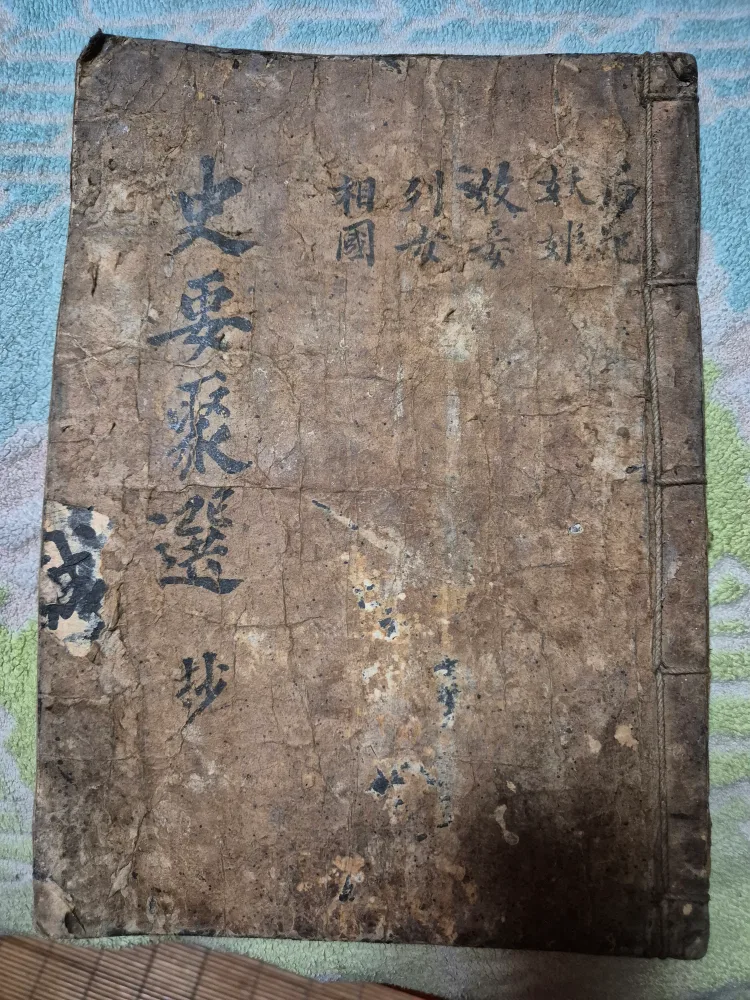 后妃
妖姬
妾
列女
相國
史要聚選 抄